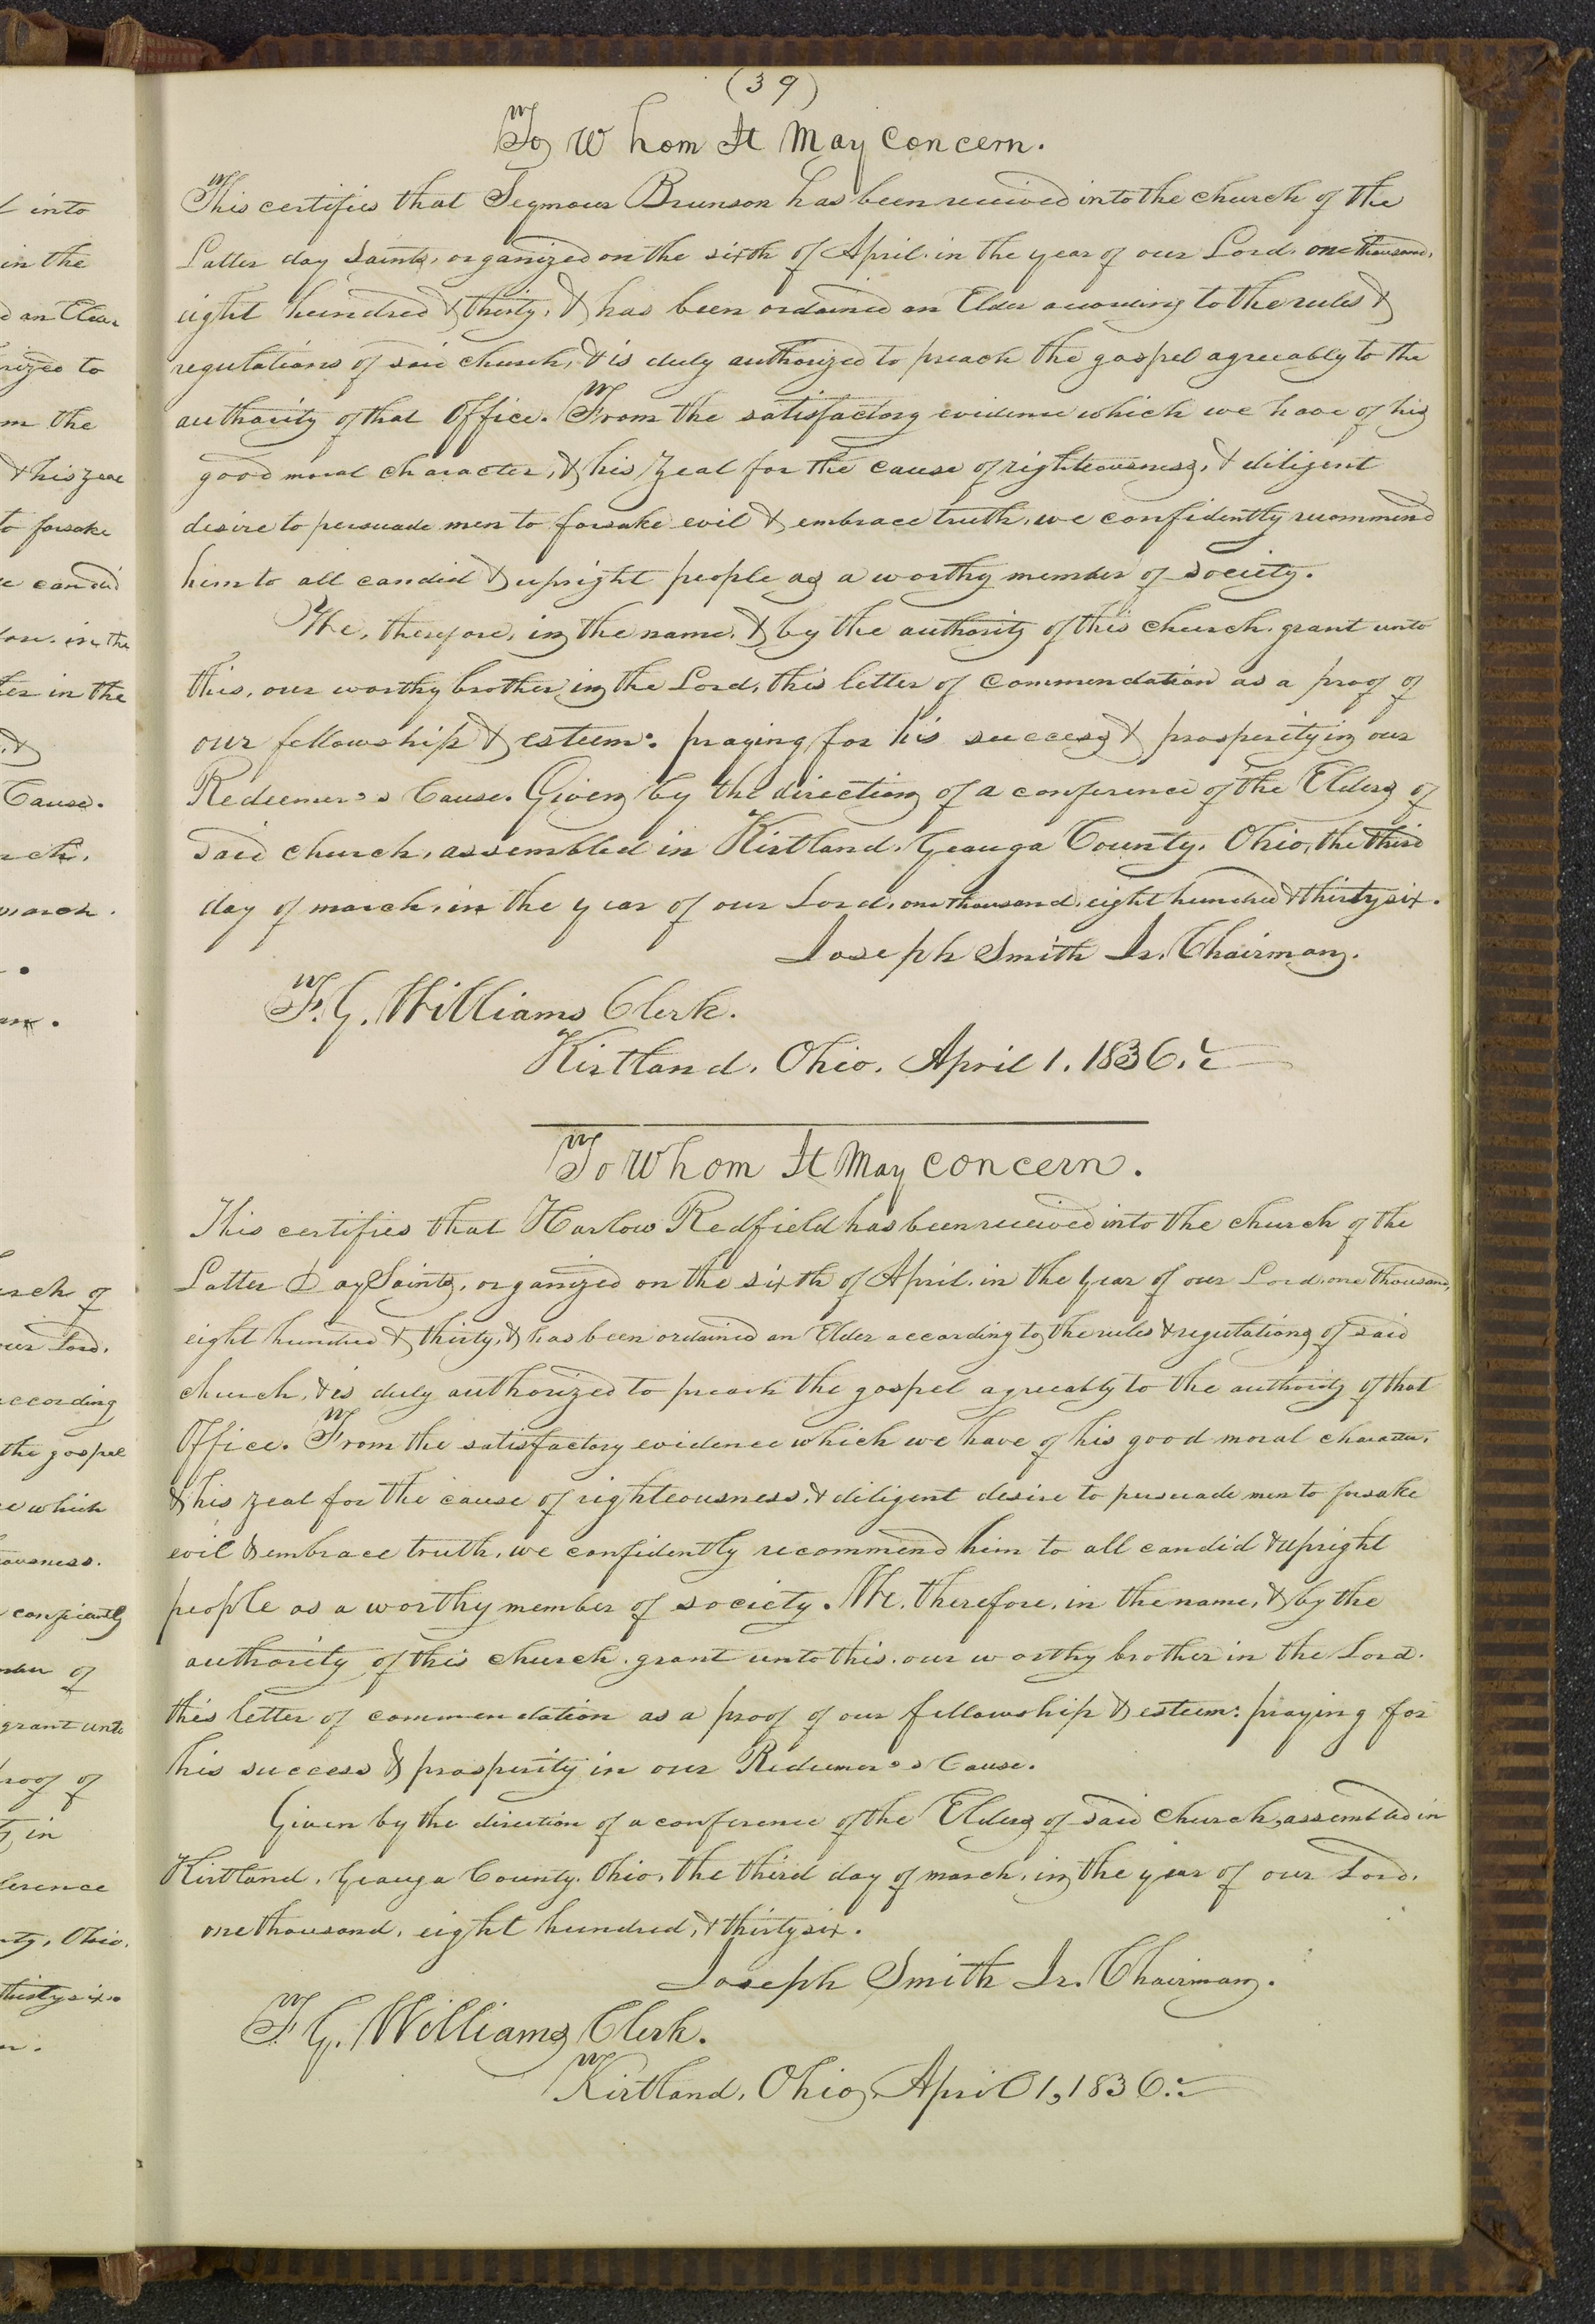 (39)
To Whom It May Concern.
This certifies that Seymour Brunson has been received into the church of the
Latter day Saints, organized on the sixth of April. in the year of our Lord. one thousand,
eight hundred & thirty, & has been ordained an Elder according to the rules &
regulations of said church, & is duly authorized to preach the gospel agreeably to the
authority of that Office. From the satisfactory evidence which we have of his
good moral character, & his zeal for the cause of righteousness, & diligent
desire to persuade men to forsake evil & embrace truth, we confidently recommend
him to all candid & upright people as a worthy member of society.
We, therefore, in the name, & by the authority of this church, grant unto
this, our worthy brother in the Lord, this letter of commendation as a proof of
our fellowship & esteem: praying for his success & prosperity in our
Redeemer's Cause. Given by the direction of a conference of the Elders of
said church, assembled in Kirtland, Geauga County, Ohio, the third
day of march, in the year of our Lord, one thousand, eight hundred & thirty six.
Joseph Smith Jr. Chairman.
F. G. Williams Clerk.
Kirtland, Ohio, April 1, 1836.
To Whom It May Concern.
This certifies that Harlow Redfield has been received into the church of the
Latter Day Saints, organized on the sixth of April, in the Year of our Lord, one thousand,
eight hundred & thirty, & has been ordained an Elder according to the rules & regulations of said
church, & is duly authorized to preach the gospel agreeably to the authority of that
Office. From the satisfactory evidence which we have of his good moral character,
& his zeal for the cause of righteousness, & diligent desire to persuade men to forsake
evil & embrace truth, we confidently recommend him to all candid & upright
people as a worthy member of society. We, therefore, in the name, & by the
authority of this church, grant unto this, our worthy brother in the Lord,
this letter of commendation as a proof of our fellowship & esteem: praying for
his success & prosperity in our Redeemer's Cause.
Given by the direction of a conference of the Elders of said Church, assembled in
Kirtland, Geauga County, Ohio, the third day of march, in the year of our Lord,
one thousand, eight hundred, & thirty six.
Joseph Smith Jr. Chairman.
F. G. Williams Clerk.
Kirtland, Ohio, April 1, 1836.